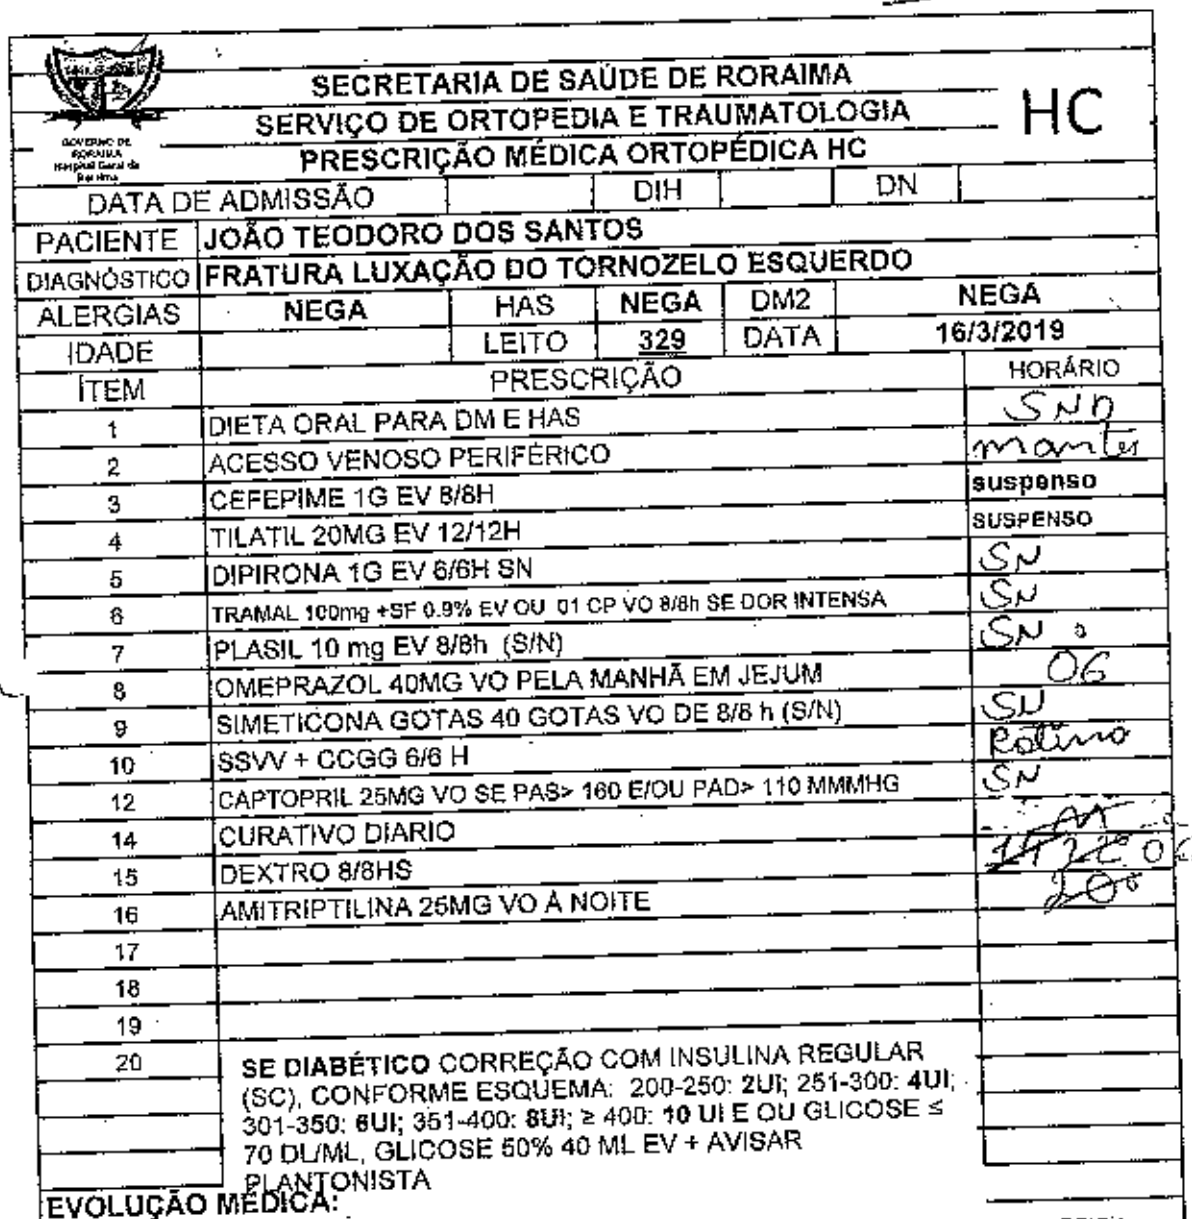 SECRETARIA DE SAÚDE DE RORAIMA
SERVIÇO DE ORTOPEDIA E TRAUMATOLOGIA
HC
PRESCRIÇÃO MÉDICA ORTOPÉDICA HC
GOVERNO DE
RORAIMA
Hospital Geral de
Roraima
DATA DE ADMISSÃO DIH DN
PACIENTE JOÃO TEODORO DOS SANTOS
DIAGNÓSTICO FRATURA LUXAÇÃO DO TORNOZELO ESQUERDO
ALERGIAS NEGA HAS NEGA DM2 NEGA
IDADE LEITO 329 DATA 16/3/2019
ÍTEM PRESCRIÇÃO HORÁRIO
1 DIETA ORAL PARA DM E HAS SND
2 ACESSO VENOSO PERIFÉRICO manter
3 CEFEPIME 1G EV 8/8H suspenso
4 TILATIL 20MG EV 12/12H SUSPENSO
5 DIPIRONA 1G EV 6/6H SN SN
6 TRAMAL 100mg +SF 0.9% EV OU 01 CP VO 8/8h SE DOR INTENSA SN
7 PLASIL 10 mg EV 8/8h (S/N) SN
8 OMEPRAZOL 40MG VO PELA MANHÃ EM JEJUM 06
9 SIMETICONA GOTAS 40 GOTAS VO DE 8/8 h (S/N) SN
10 SSVV + CCGG 6/6 H Rotina
12 CAPTOPRIL 25MG VO SE PAS> 160 E/OU PAD> 110 MMMHG SN
14 CURATIVO DIARIO M
15 DEXTRO 8/8HS 14 22 06
16 AMITRIPTILINA 25MG VO À NOITE 20
17
18
19
20 SE DIABÉTICO CORREÇÃO COM INSULINA REGULAR
(SC), CONFORME ESQUEMA: 200-250: 2UI; 251-300: 4UI;
301-350: 6UI; 351-400: 8UI; ≥ 400: 10 UI E OU GLICOSE ≤
70 DL/ML, GLICOSE 50% 40 ML EV + AVISAR
PLANTONISTA
EVOLUÇÃO MÉDICA: